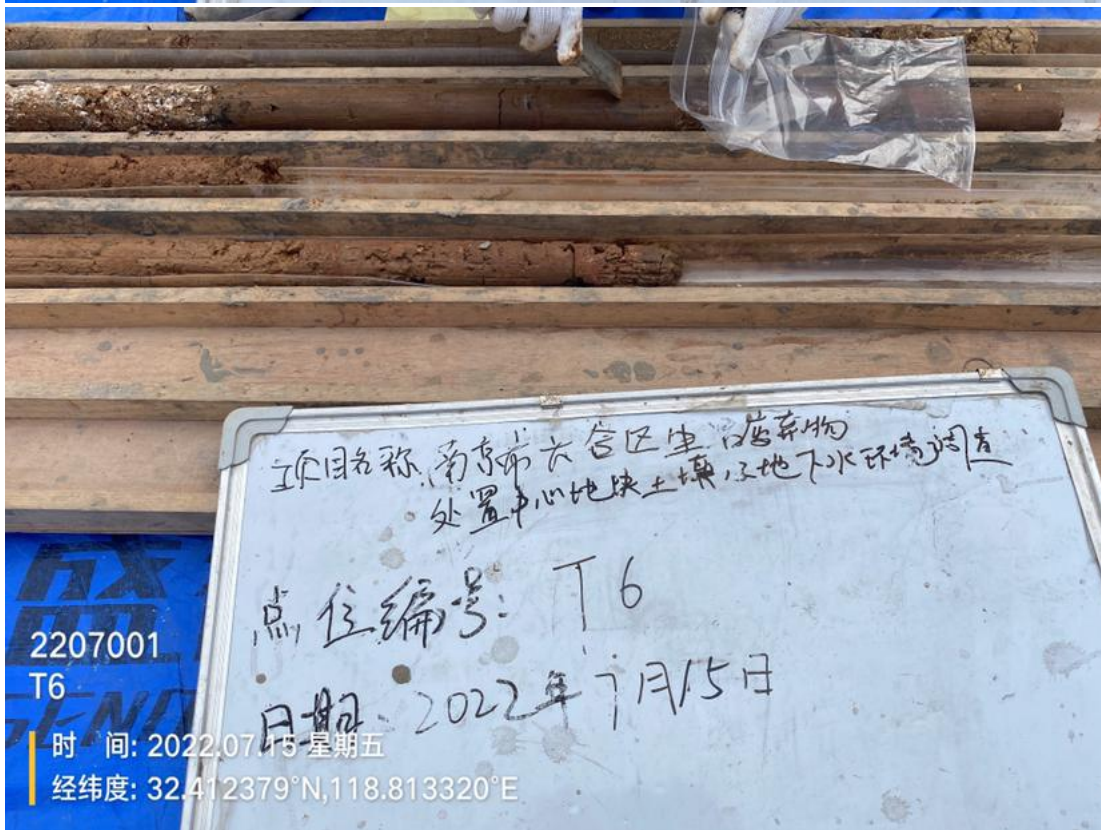 项目名称 南京市六合区生活废弃物
处置中心地块土壤、地下水环境调查
点位编号: T6
日期: 2022年7月15日
2207001
T6
时 间: 2022.07.15 星期五
经纬度: 32.412379°N,118.813320°E